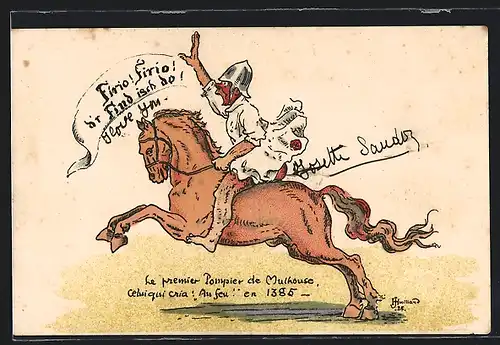 Firio! Firio!
d'r Find isch do!
I love you.
Josette Sandoz
Le premier Pompier de Mulhouse,
Celui qui cria: "Au feu!" en 1385 —
38.